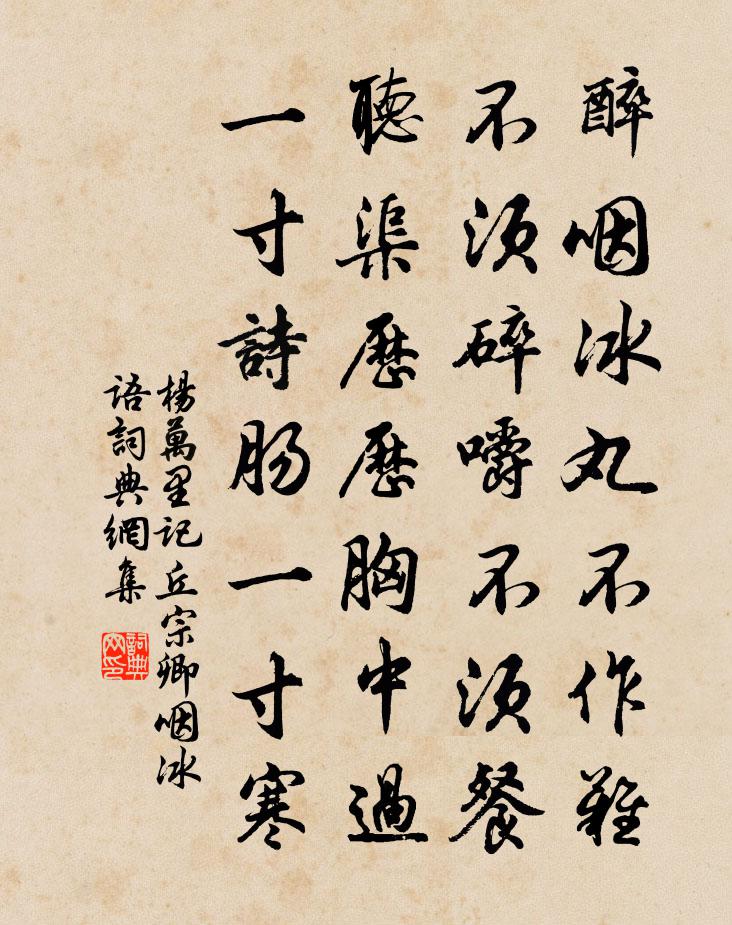 醉咽冰丸不作難
不須碎嚼不須餐
聽渠歷歷胸中過
一寸詩腸一寸寒
楊萬里記丘宗卿咽冰
語詞典網集
詞典
网印